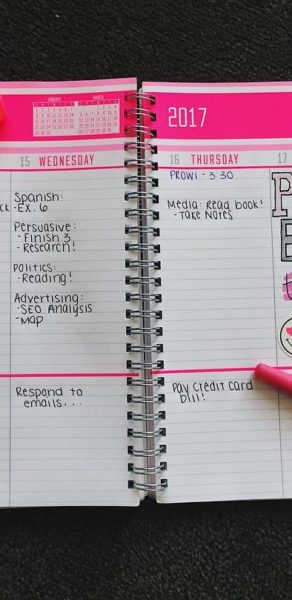 JANUARY
MARCH
2017
15 WEDNESDAY
16 THURSDAY
17
Spanish:
-EX. 6
Persuasive:
-Finish 3
-Research!
Politics:
-Reading!
Advertising:
-SEO Analysis
-Map
Respond to
emails...
PROWL - 3:30
Media: Read book!
-Take Notes
Pay Credit Card
bill!